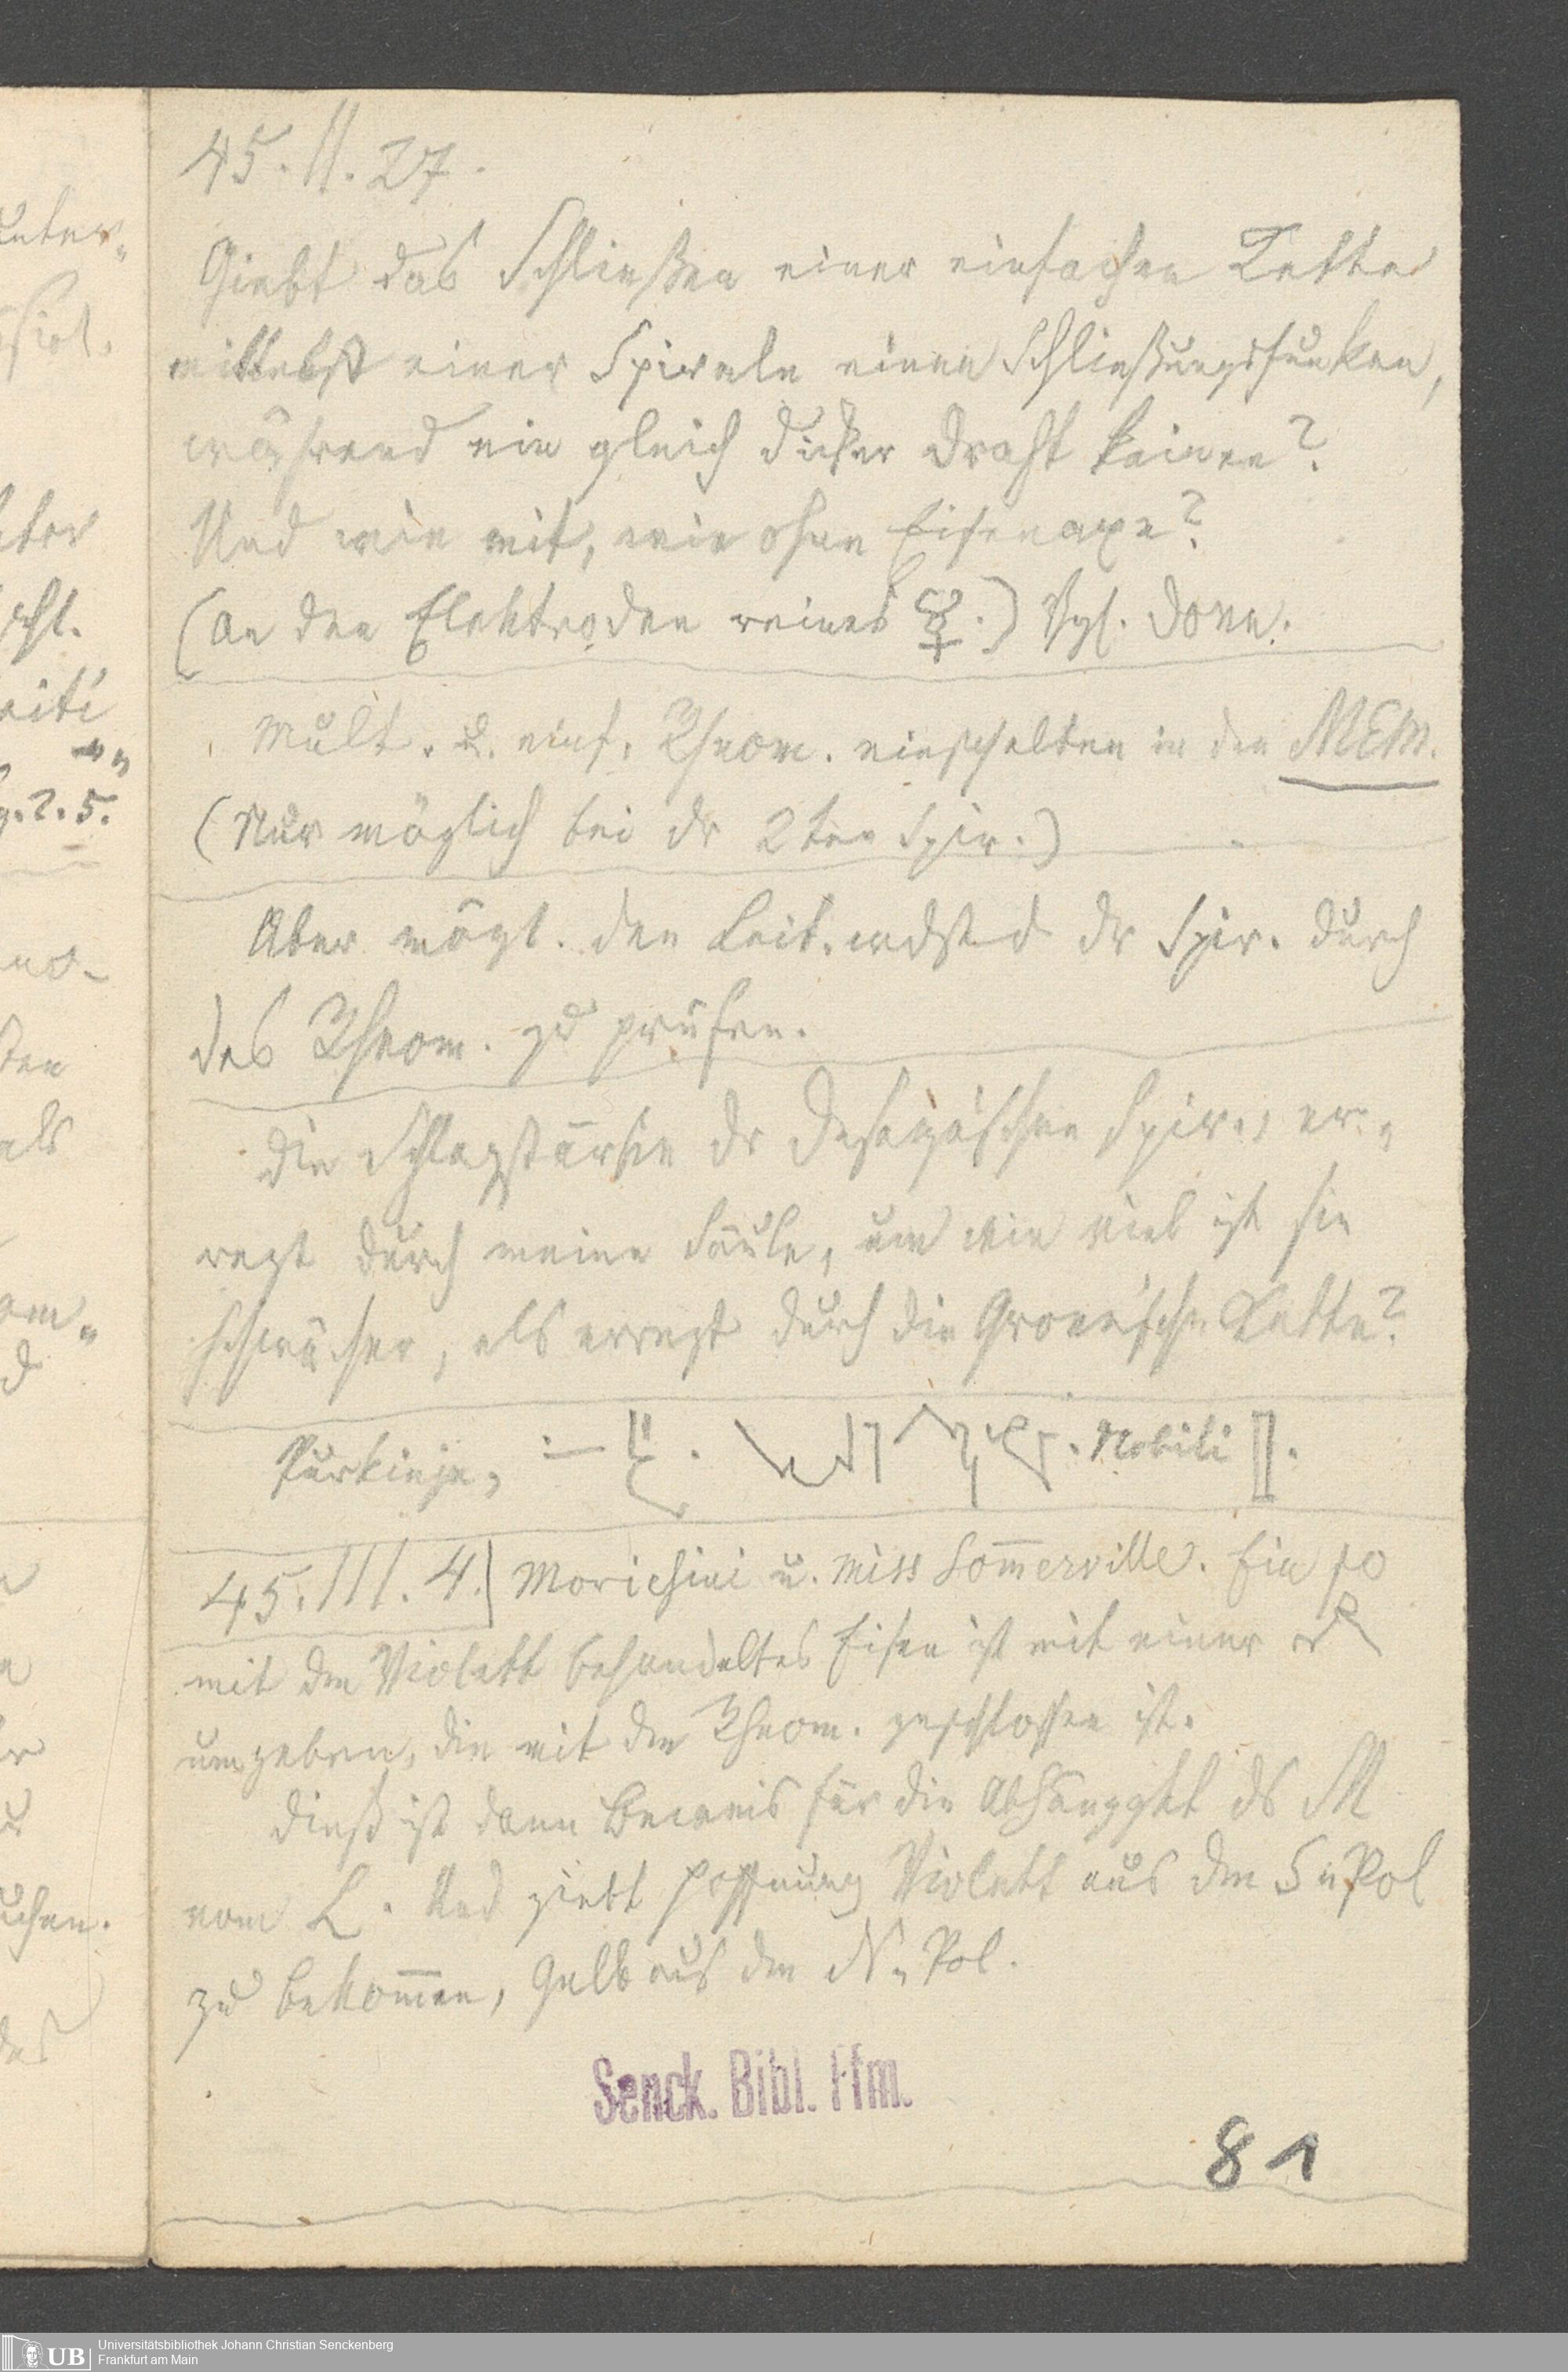 45. II. 27.
Giebt das Schließen einer einfachen Kette
mittelst einer Spirale einen Schließungsfunken,
während ein gleich dicker Draht keinen?
Und wie mit, wie ohne Eisenaxe?
(An den Elektroden reines ☿.) Vgl. Dove.
Mult. u. einf. Rheom. einschalten in den MEM.
(Nur möglich bei dr 2ten Spir.)
Aber mögl. den Leit. wdstd dr Spir. durch
das Rheom. zu prüfen.
Die Schlagstärke dr Desagaischen Spir., er„
regt durch meine Säule, um wie viel ist sie
schwächer, als erregt durch die Grove'sche Kette?
Purkinje, Nobili
45. III. 4. Morichini u. Miss Som̅erville. Ein so
mit dem Violett behandeltes Eisen ist mit einer
umgeben, die mit dem Rheom. geschlossen ist.
Dieß ist dann Beweis für die Abhängigkt ds M
vom L. Und giebt Hoffnung Violett aus dem S„Pol
zu bekom̅en, Gelb aus dem N„Pol.
Senck. Bibl. Ffm.
81
unter„
chen.
als
ten
no-
Universitätsbibliothek Johann Christian Senckenberg
Frankfurt am Main
UB